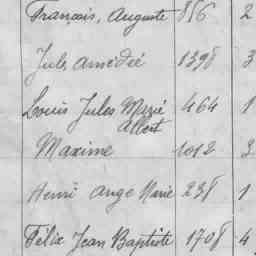 François, Auguste 856 2
Jules Amédée 1398 3
Louis Jules 464 1
Albert
Maxime 1012 3
Henri Ange Marie 238 1
Félix Jean Baptiste 1708 4